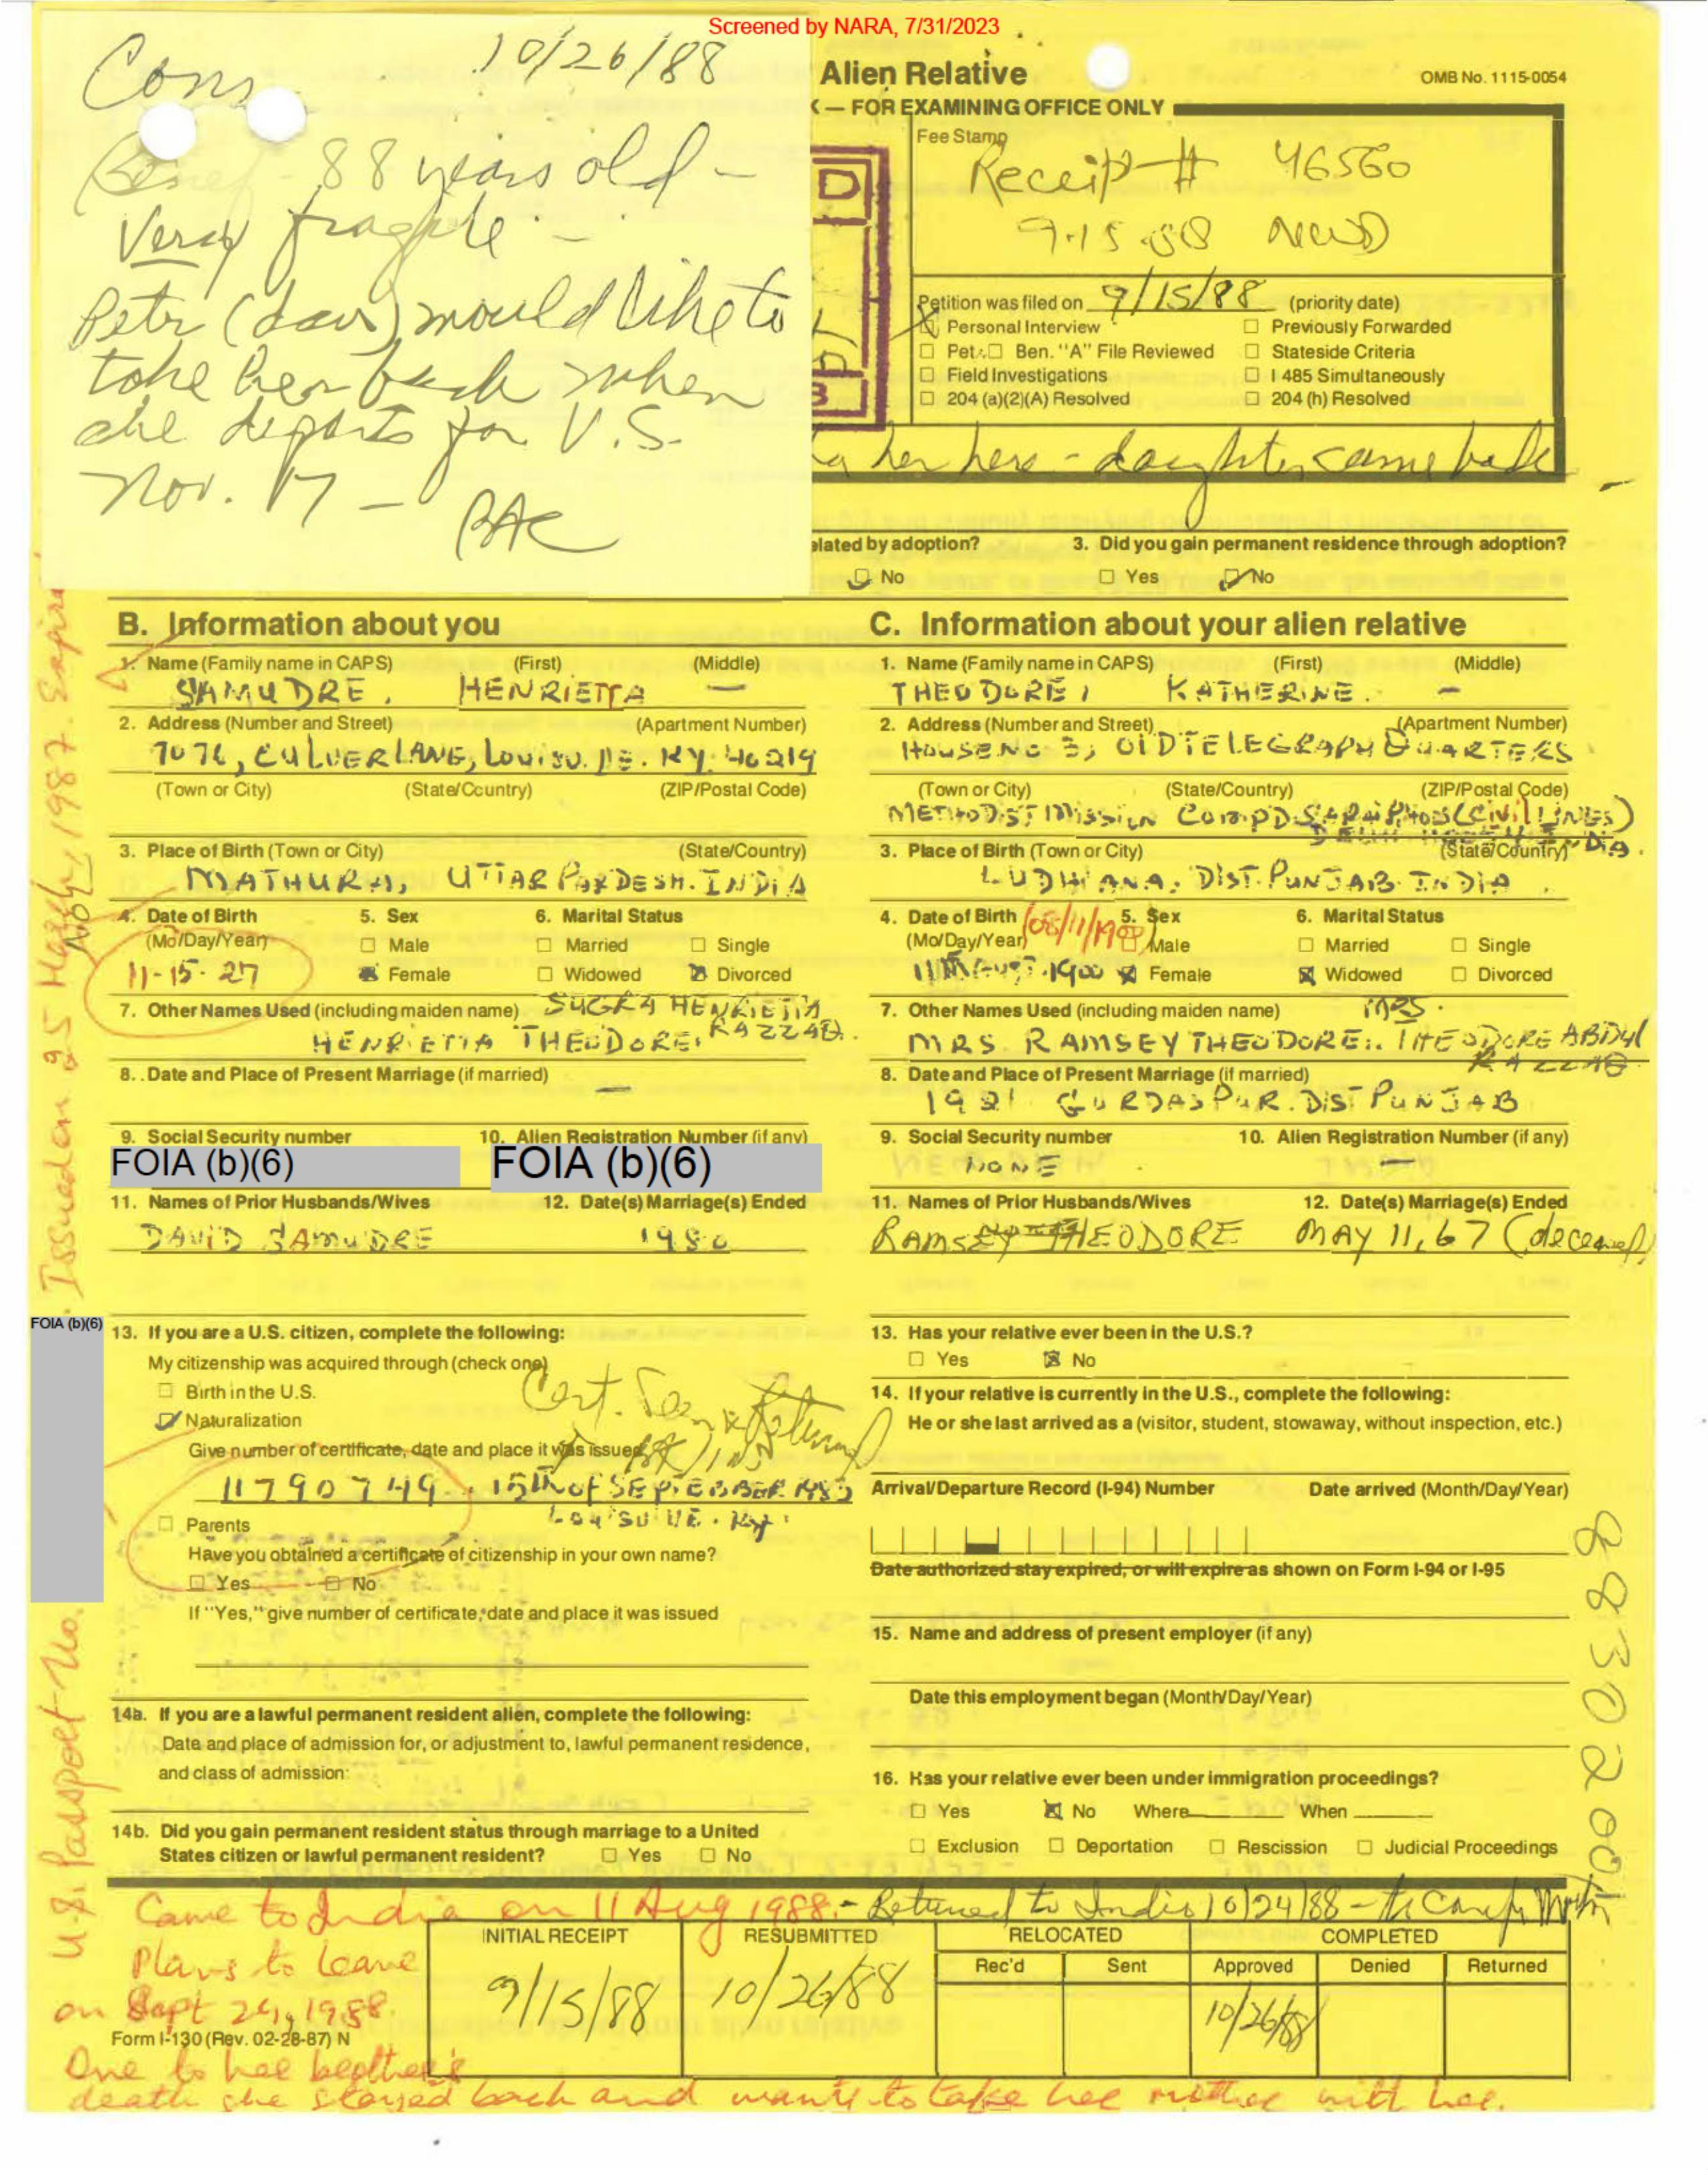 Screened by NARA, 7/31/2023
10/26/88
Cons
Benef - 88 years old -
Very fragile -
Petr (dau) would like to
take her back when
she departs for U.S.
Nov. 17 -
Alien Relative
OMB No. 1115-0054
— FOR EXAMINING OFFICE ONLY
Fee Stamp
Receipt # 46560
9-15-88
D
Petition was filed on 9/15/88 (priority date)
Personal Interview
Previously Forwarded
Pet. Ben. "A" File Reviewed
Stateside Criteria
Field Investigations
I 485 Simultaneously
204 (a)(2)(A) Resolved
204 (h) Resolved
her here - daughter came back
elated by adoption?
No
3. Did you gain permanent residence through adoption?
Yes No
B. Information about you
1. Name (Family name in CAPS) (First) (Middle)
SAMUDRE, HENRIETTA —
2. Address (Number and Street) (Apartment Number)
7076, CULVERLANE, LouisviLLE. KY. 40219
(Town or City) (State/Country) (ZIP/Postal Code)
3. Place of Birth (Town or City) (State/Country)
MATHURA, UTTAR PARDESH. INDIA
4. Date of Birth
(Mo/Day/Year)
11-15-27
5. Sex
Male
Female
6. Marital Status
Married Single
Widowed Divorced
7. Other Names Used (including maiden name) SUGRA HENRIETTA
HENRIETTA THEODORE, RAZZAB.
8. Date and Place of Present Marriage (if married)
—
9. Social Security number 10. Alien Registration Number (if any)
FOIA (b)(6) FOIA (b)(6)
11. Names of Prior Husbands/Wives 12. Date(s) Marriage(s) Ended
DAVID SAMUDRE 1980
13. If you are a U.S. citizen, complete the following:
My citizenship was acquired through (check one)
Birth in the U.S.
Naturalization
Cert. Seen & Returned
Give number of certificate, date and place it was issued
11790749. 15th OF SEPTEBBER 1983
Parents
Have you obtained a certificate of citizenship in your own name?
Yes No
If "Yes," give number of certificate, date and place it was issued
14a. If you are a lawful permanent resident alien, complete the following:
Date and place of admission for, or adjustment to, lawful permanent residence,
and class of admission:
14b. Did you gain permanent resident status through marriage to a United
States citizen or lawful permanent resident? Yes No
C. Information about your alien relative
1. Name (Family name in CAPS) (First) (Middle)
THEODORE, KATHERINE. —
2. Address (Number and Street) (Apartment Number)
HOUSE NO 3, OLD TELEGRAPH QUARTERS
(Town or City) (State/Country) (ZIP/Postal Code)
METHODIST MISSION COMPD. (CIVIL LINES)
3. Place of Birth (Town or City) (State/Country)
LUDHIANA, DIST. PUNJAB INDIA
4. Date of Birth
(Mo/Day/Year)
(08/11/1900)
11 AUGUST. 1900
5. Sex
Male
Female
6. Marital Status
Married Single
Widowed Divorced
7. Other Names Used (including maiden name) MRS.
MRS. RAMSEY THEODORE. THEODORE ABDUL
RAZZAB
8. Date and Place of Present Marriage (if married)
1921 GURDASPUR. DIST PUNJAB
9. Social Security number 10. Alien Registration Number (if any)
NONE —
11. Names of Prior Husbands/Wives 12. Date(s) Marriage(s) Ended
RAMSEY THEODORE MAY 11, 67 (deceased)
13. Has your relative ever been in the U.S.?
Yes No
14. If your relative is currently in the U.S., complete the following:
He or she last arrived as a (visitor, student, stowaway, without inspection, etc.)
Arrival/Departure Record (I-94) Number Date arrived (Month/Day/Year)
Date authorized stay expired, or will expire as shown on Form I-94 or I-95
15. Name and address of present employer (if any)
Date this employment began (Month/Day/Year)
16. Has your relative ever been under immigration proceedings?
Yes No Where When
Exclusion Deportation Rescission Judicial Proceedings
Came to India on 11 Aug 1988. - Returned to India 10/24/88 -
Plans to leave
on Sept 24, 1988.
INITIAL RECEIPT
9/15/88
RESUBMITTED
10/26/88
RELOCATED
Rec'd Sent
COMPLETED
Approved Denied Returned
10/26/88
Form I-130 (Rev. 02-28-87) N
Due to her brother's
death she stayed back and wants to take her mother with her.
FOIA (b)(6)
U.S. Passport No.